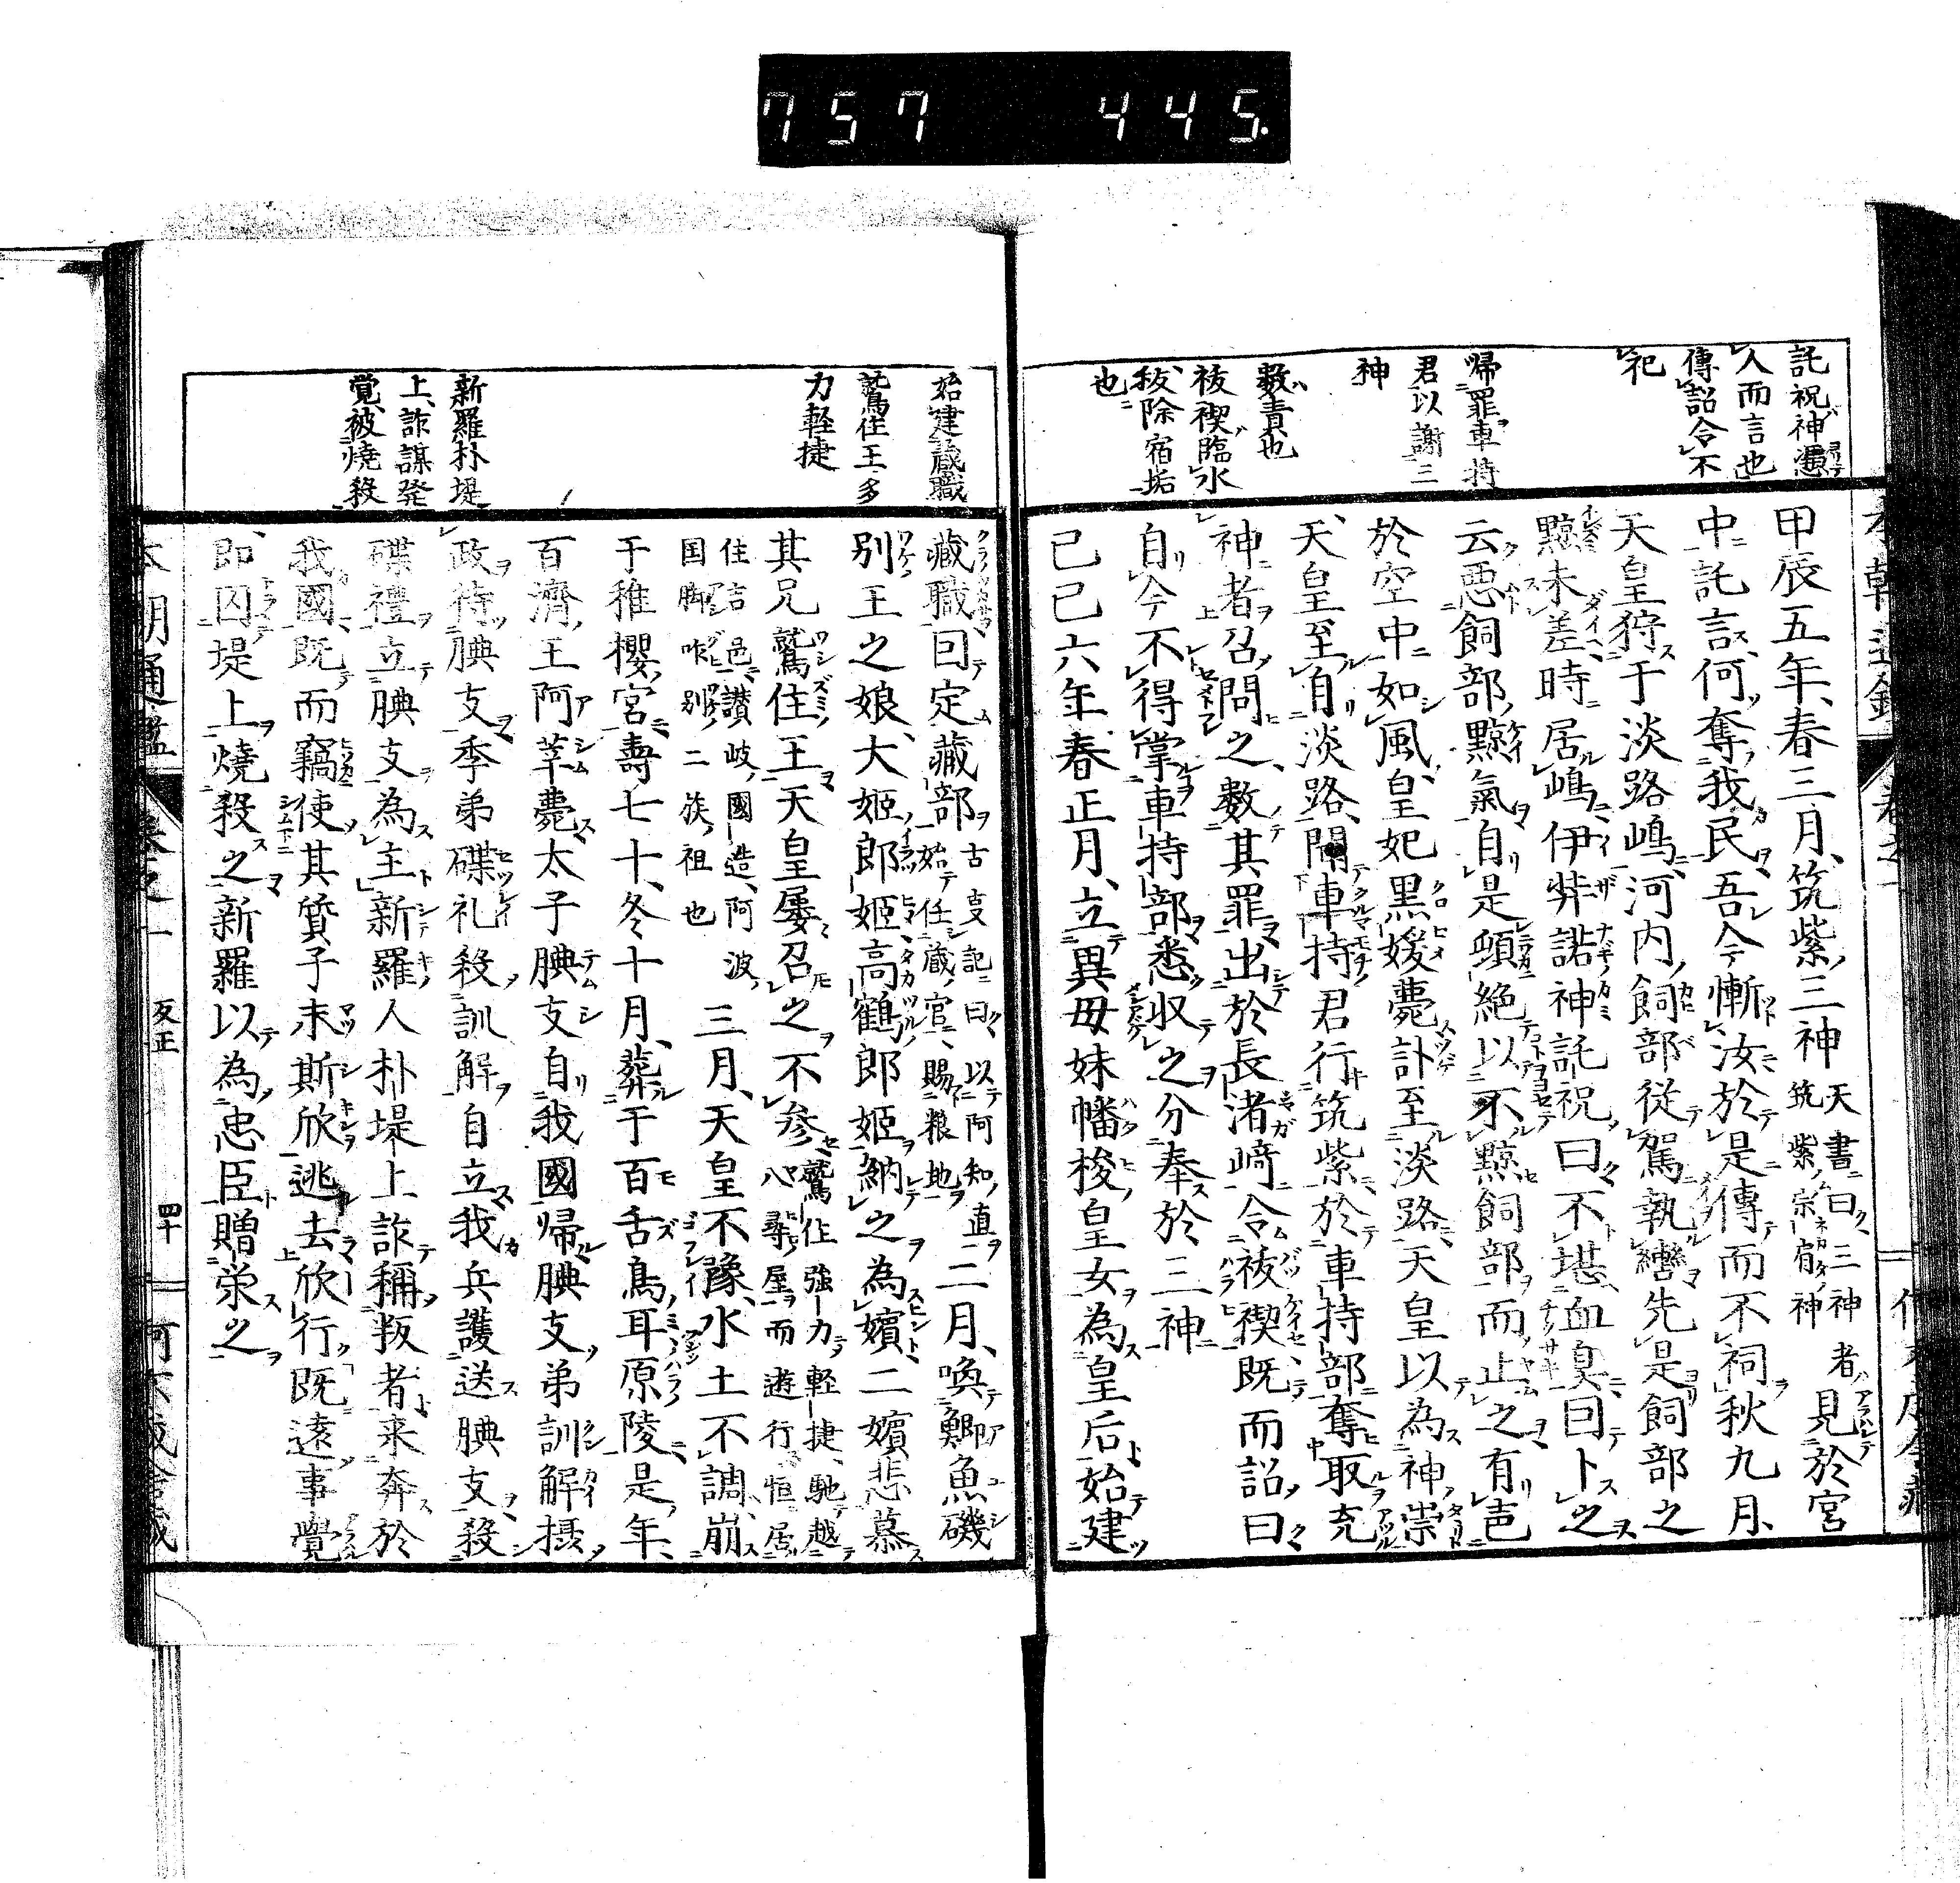 757 445.
託祝神憑
人而言也
傳詔令不
祀
帰罪車持
君以謝三
神
数責也
祓禊臨水
祓除宿垢
也
甲辰五年春三月筑紫三神天書曰三神者筑紫宗肩神見於宮
中託言何奪我民吾今慚汝於是傳而不祠秋九月
天皇狩于淡路嶋河内飼部從駕執轡先是飼部之
黥未差時居嶋伊弉諾神託祝曰不堪血臭囙卜之
云惡飼部黥氣自是頓絶以不黥飼部而止之有声
於空中如風皇妃黒媛薨訃至淡路天皇以為神崇
天皇至自淡路聞車持君行筑紫於車持部奪取充
神者召問之數其罪出於長渚﨑令祓禊既而詔曰
自今不得掌車持部悉収之分奉於三神
已已六年春正月立異母妹幡梭皇女為皇后始建
始建蔵職
鷲住王多
力軽捷
新羅朴堤
上詐謀発
覚被焼殺
藏職囙定藏部古吏記曰以阿知直始任蔵官賜粮地二月喚鯽魚磯
別王之娘大姬郎姬高鶴郎姬納之為嬪二嬪悲慕
其兄鷲住王天皇屡召之不参鷲住強力軽捷馳越八尋屋而遊行恒居
住吉邑讃岐國造阿波国脚咋別二族祖也三月天皇不豫水土不調崩
于稚櫻宮壽七十冬十月葬于百舌鳥耳原陵是年
百濟王阿莘薨太子腆支自我國帰腆支弟訓解摂
政待腆支季弟碟礼殺訓解自立我兵護送腆支殺
碟禮立腆支為主新羅人朴堤上詐稱叛者来奔於
我國既而竊使其質子末斯欣逃去欣行既遠事覺
即囚堤上燒殺之新羅以為忠臣贈栄之
本朝通鑑
卷之一
反正
四十